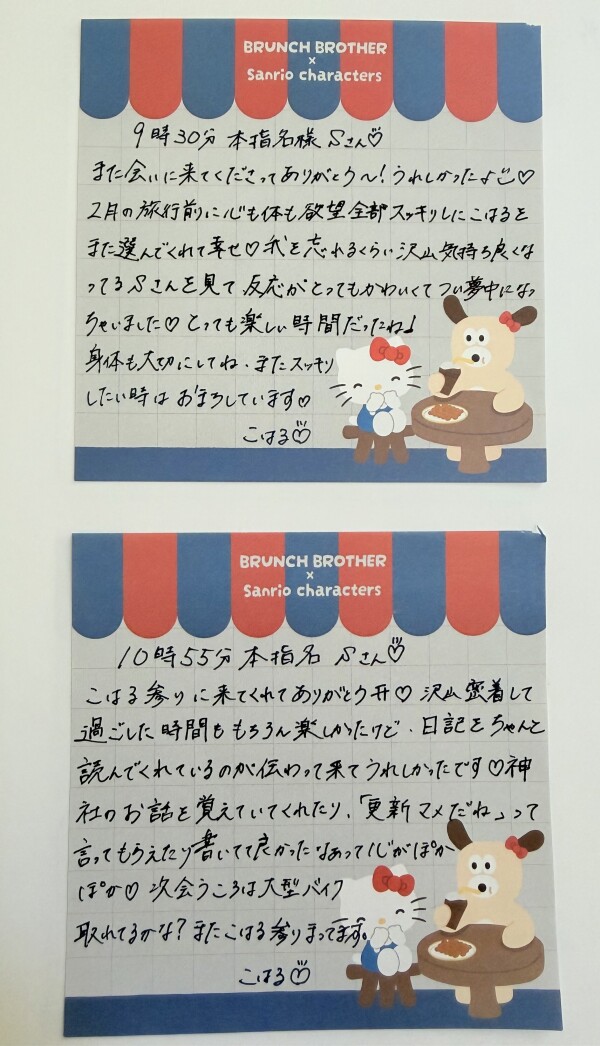 BRUNCH BROTHER
×
Sanrio characters
9時30分 本指名様 Sさん♡
また会いに来てくださってありがとう〜!うれしかったよ♡
2月の旅行前に心も体も欲望全部スッキリしにこはるを
また選んでくれて幸せ♡我を忘れるくらい沢山気持ち良くな
ってるSさんを見て反応がとってもかわいくてつい夢中になっ
ちゃいました♡とっても楽しい時間だったね♩
身体も大切にしてね、またスッキリ
したい時はおまちしています♡
こはる♡
BRUNCH BROTHER
×
Sanrio characters
10時55分 本指名 Sさん♡
こはる参りに来てくれてありがとう♡沢山密着して
過ごした時間ももちろん楽しかったけど、日記をちゃんと
読んでくれているのが伝わって来てうれしかったです♡神
社のお話を覚えていてくれたり、「更新マメだね」って
言ってもらえたり書いてて良かったなあって心がぽか
ぽか♡次会うころは大型バイク
取れてるかな?またこはる参りまってます。
こはる♡